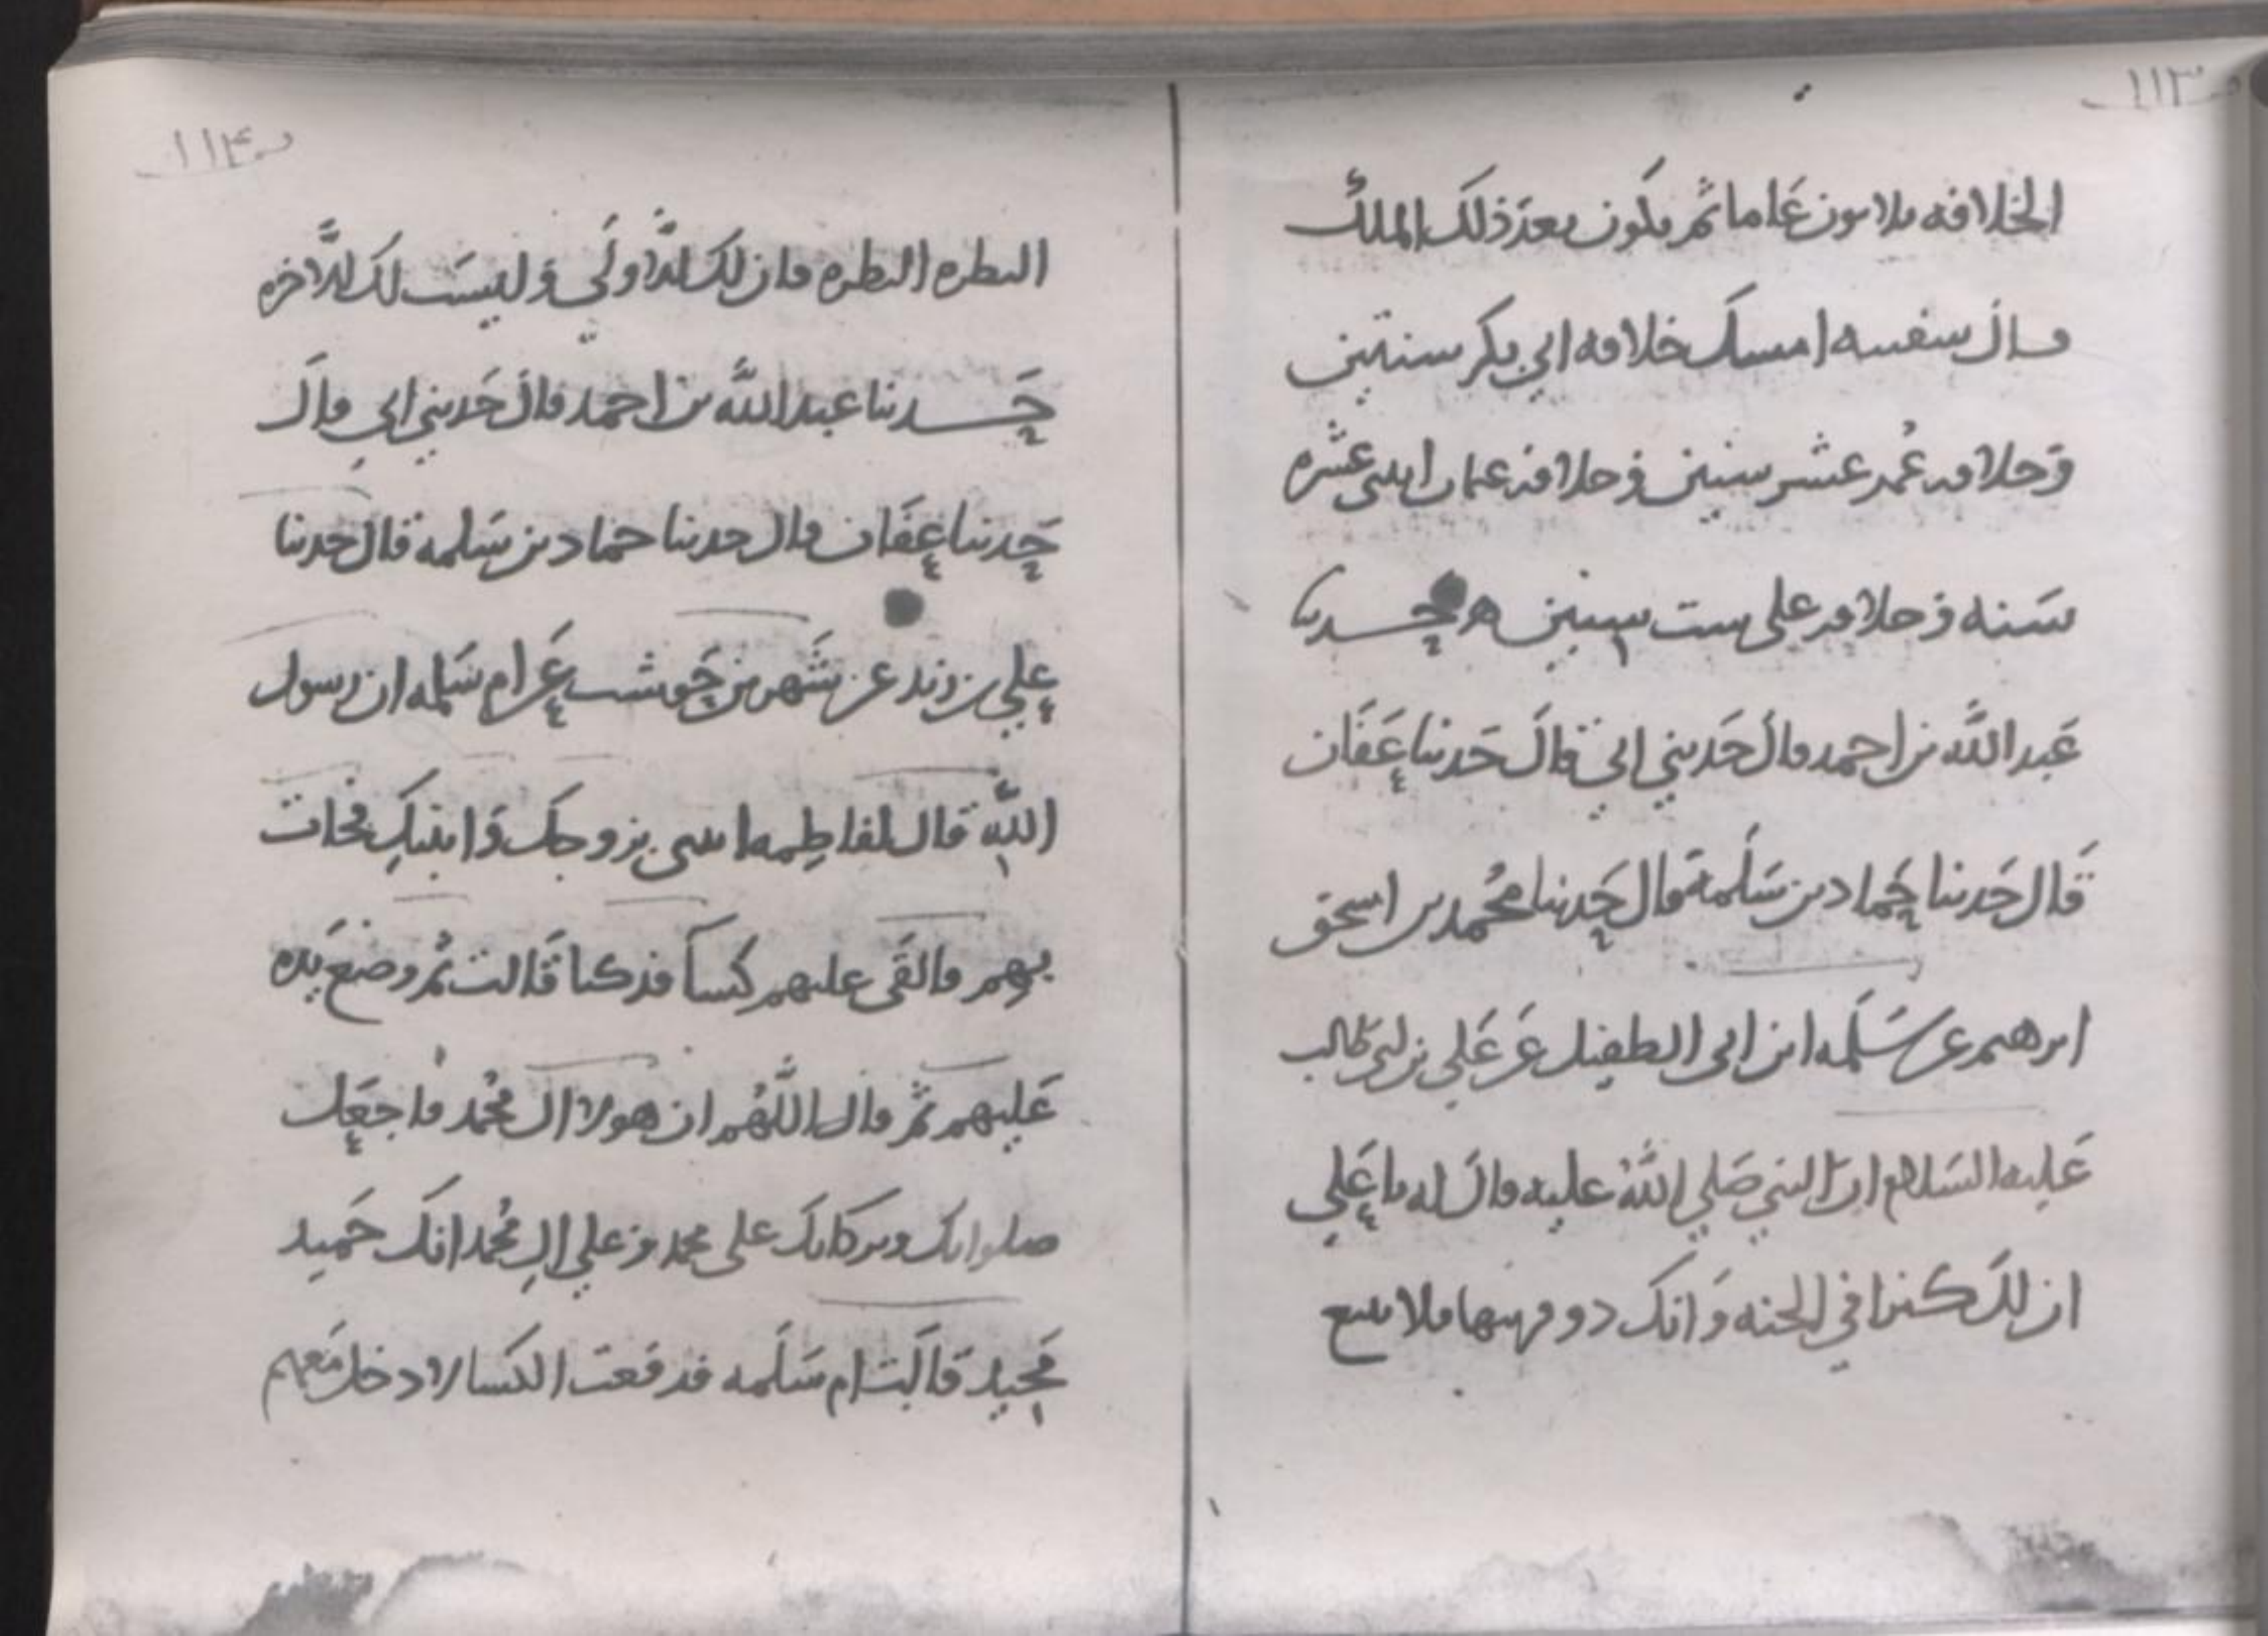 ص ١١٣
الخلافه ثلاثون عاما ثم يكون بعد ذلك الملك
قال سفينه امسك خلافه ابي بكر سنتين
وخلافه عمر عشر سنين وخلافه عثمان اثنتي عشره
سنه وخلافه علي ست سنين ه حدثنا
عبد الله بن احمد قال حدثني ابي قال حدثنا عفان
قال حدثنا حماد بن سلمة قال حدثنا محمد بن اسحق
ابرهيم عن سلمه ابن ابي الطفيل عن علي بن ابي طالب
عليه السلام ان النبي صلي الله عليه قال له يا علي
ان لك كنزا في الجنه وانك ذو قرنيها فلا تتبع
ص ١١٤
النظره النظره فان لك الاولي وليست لك الاخره
حدثنا عبد الله بن احمد قال حدثني ابي قال
حدثنا عفان قال حدثنا حماد بن سلمه قال حدثنا
علي بن زيد عن شهر بن حوشب عن ام سلمه ان رسول
الله قال لفاطمه ائتني بزوجك وابنيك فجات
بهم فالقى عليهم كسا فدكيا قالت ثم وضع يده
عليهم ثم قال اللهم ان هولا ال محمد فاجعل
صلواتك وبركاتك على محمد وعلي ال محمد انك حميد
مجيد قالت ام سلمه فرفعت الكسا لادخل معهم